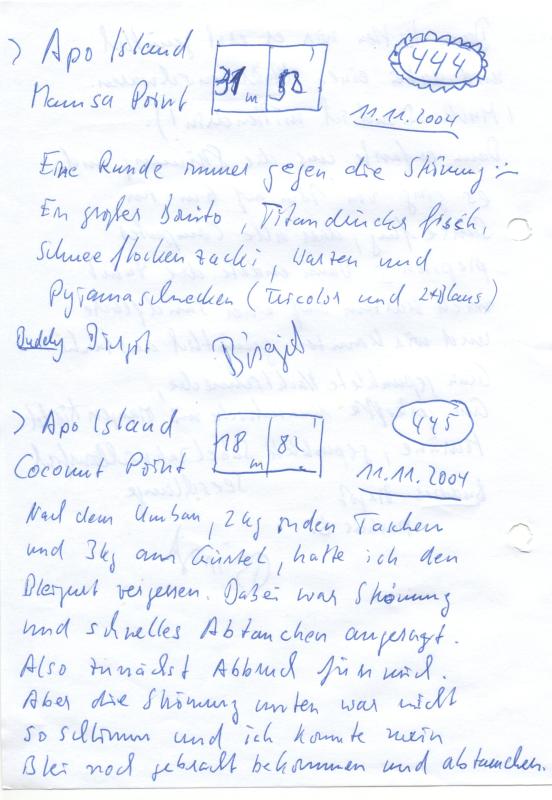 > Apo Island 444
Mamsa Point 11.11.2004
Eine Runde immer gegen die Strömung :-
Ein großer Bonito, Titandrückerfisch,
Schneeflocken zacki, Warzen und
Pyjamaschnecken (Tricolor und
Buddy Birgit Birgit
> Apo Island 18 m 445
Coconut Point 11.11.2004
Nach dem Umbau, 2 kg in den Taschen
und 3 kg am Gürtel, hatte ich den
Bleigurt vergessen. Dabei war Strömung
und schnelles Abtauchen angesagt.
Also zunächst Abbruch für mich.
Aber die Strömung unten war nicht
so schlimm und ich konnte mein
Blei noch gebracht bekommen und abtauchen.